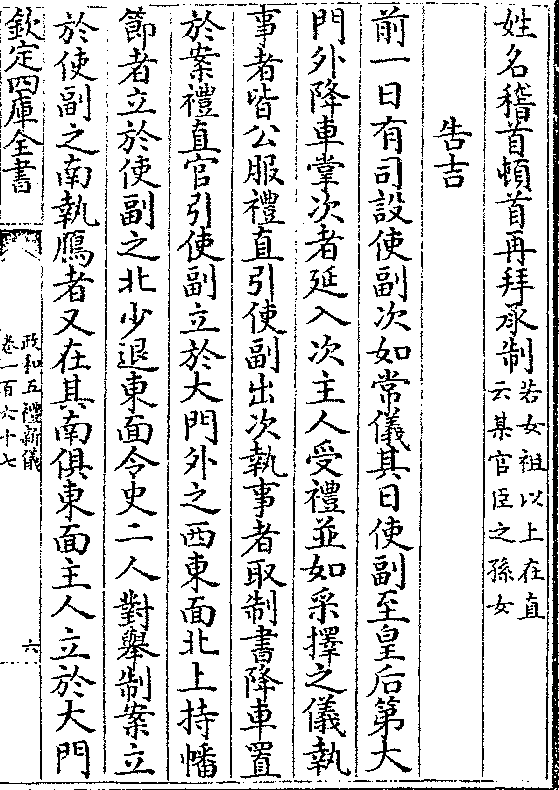 姓名稽首頓首再拜承制若女祖以上在直
云某官臣之孫女
告吉
前一日有司設使副次如常儀其日使副至皇后第大
門外降車掌次者延入次主人受禮並如采擇之儀執
事者皆公服禮直引使副出次執事者取制書降車置
於案禮直官引使副立於大門外之西東面北上持幡
節者立於使副之北少退東面令史二人對舉制案立
於使副之南執鴈者又在其南俱東面主人立於大門
欽定四庫全書
政和五禮新儀
卷一百六十七
六